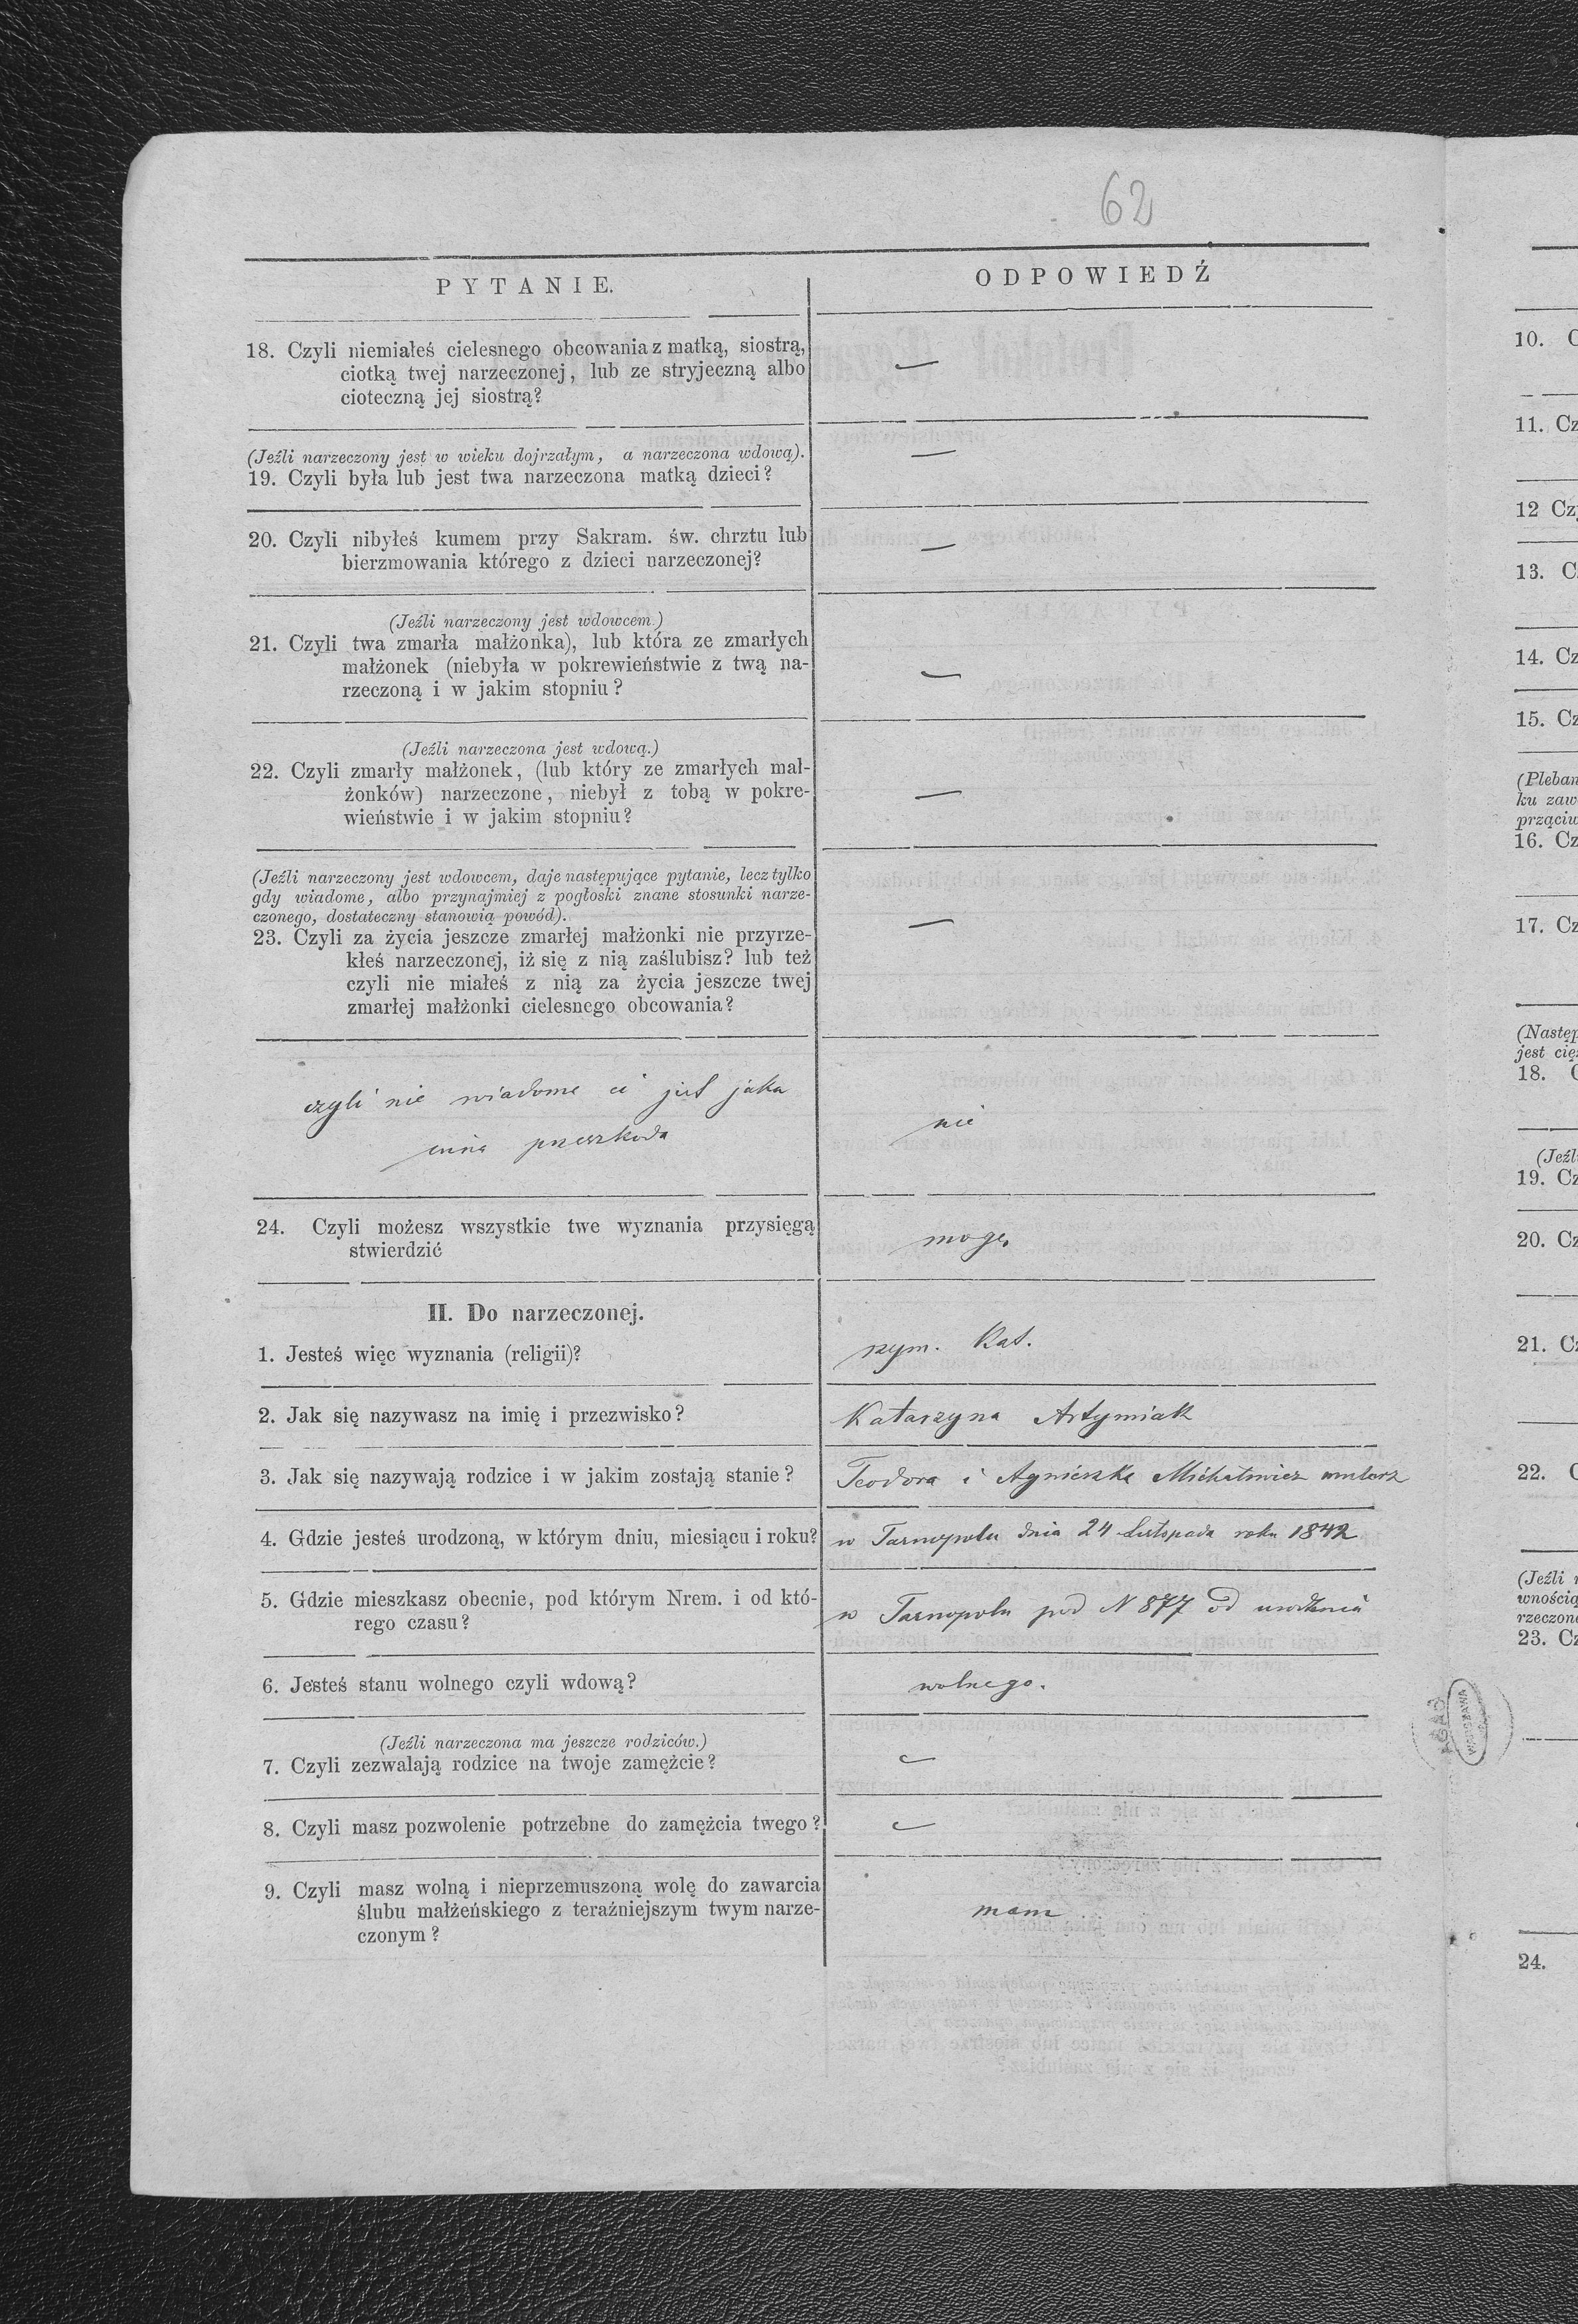 62
PYTANIE.
ODPOWIEDŹ
18. Czyli niemiałeś cielesnego obcowania z matką, siostrą,
ciotką twej narzeczonej, lub ze stryjeczną albo
cioteczną jej siostrą?
—
(Jeźli narzeczony jest w wieku dojrzałym, a narzeczona wdową).
19. Czyli była lub jest twa narzeczona matką dzieci?
—
20. Czyli nibyłeś kumem przy Sakram. św. chrztu lub
bierzmowania którego z dzieci narzeczonej?
—
(Jeźli narzeczony jest wdowcem.)
21. Czyli twa zmarła małżonka), lub która ze zmarłych
małżonek (niebyła w pokrewieństwie z twą na-
rzeczoną i w jakim stopniu?
—
(Jeźli narzeczona jest wdową.)
22. Czyli zmarły małżonek, (lub który ze zmarłych mał-
żonków) narzeczone, niebył z tobą w pokre-
wieństwie i w jakim stopniu?
—
(Jeźli narzeczony jest wdowcem, daje następujące pytanie, lecz tylko
gdy wiadome, albo przynajmiej z pogłoski znane stosunki narze-
czonego, dostateczny stanowią powód).
23. Czyli za życia jeszcze zmarłej małżonki nie przyrze-
kłeś narzeczonej, iż się z nią zaślubisz? lub też
czyli nie miałeś z nią za życia jeszcze twej
zmarłej małżonki cielesnego obcowania?
—
czyli nie wiadome ci jest jaka
inna przeszkoda
nie
24. Czyli możesz wszystkie twe wyznania przysięgą
stwierdzić
mogę
II. Do narzeczonej.
1. Jesteś więc wyznania (religii)?
rzym. Kat.
2. Jak się nazywasz na imię i przezwisko?
Katarzyna Artymiak
3. Jak się nazywają rodzice i w jakim zostają stanie?
Teodora i Agnieszka
4. Gdzie jesteś urodzoną, w którym dniu, miesiącu i roku?
w Tarnopolu dnia 24 Listopada roku 1842
5. Gdzie mieszkasz obecnie, pod którym Nrem. i od któ-
rego czasu?
w Tarnopolu pod N 877 od urodzenia
6. Jesteś stanu wolnego czyli wdową?
wolnego.
(Jeźli narzeczona ma jeszcze rodziców.)
7. Czyli zezwalają rodzice na twoje zamężcie?
—
8. Czyli masz pozwolenie potrzebne do zamężcia twego?
—
9. Czyli masz wolną i nieprzemuszoną wolę do zawarcia
ślubu małżeńskiego z teraźniejszym twym narze-
czonym?
mam
AGAD
WARSZAWA
10. C
11. Cz
12 Cz
13. C
14. Cz
15. Cz
(Pleban
ku zaw
prząciw
16. Cz
17. Cz
(Następ
jest cię
18. C
(Jeźl
19. Cz
20. Cz
21. Cz
22. C
(Jeźli
wnością
rzeczone
23. Cz
24.